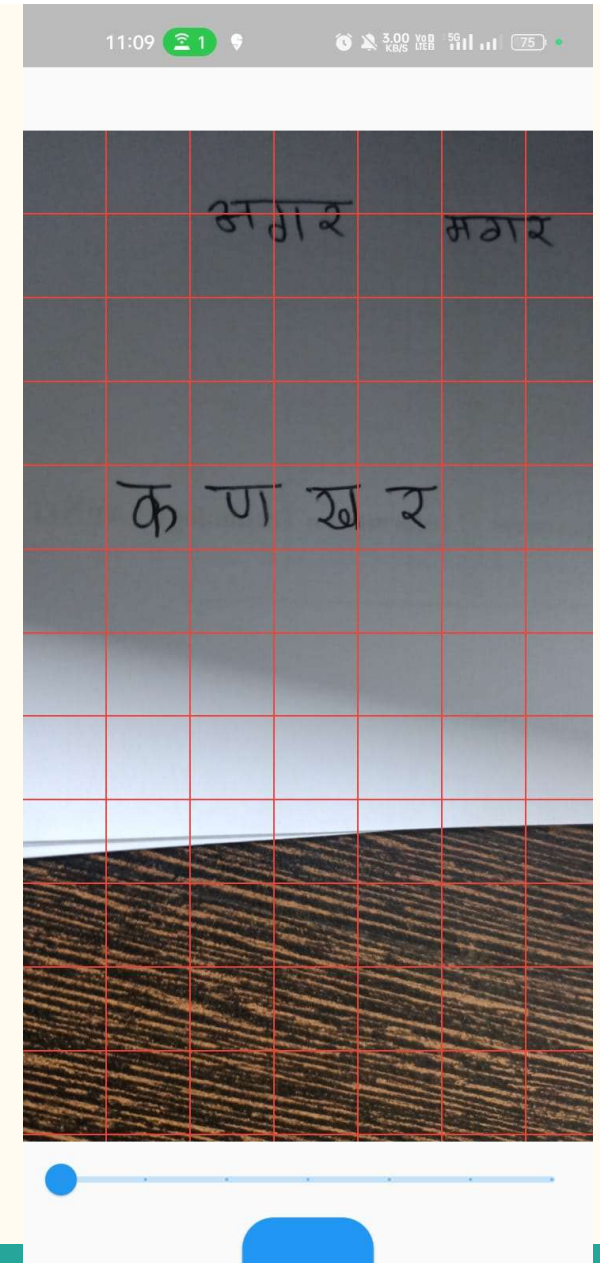 11:09 1 3.00 KB/S VoD LTE2 5G 75
अगर मगर
क ण ख र